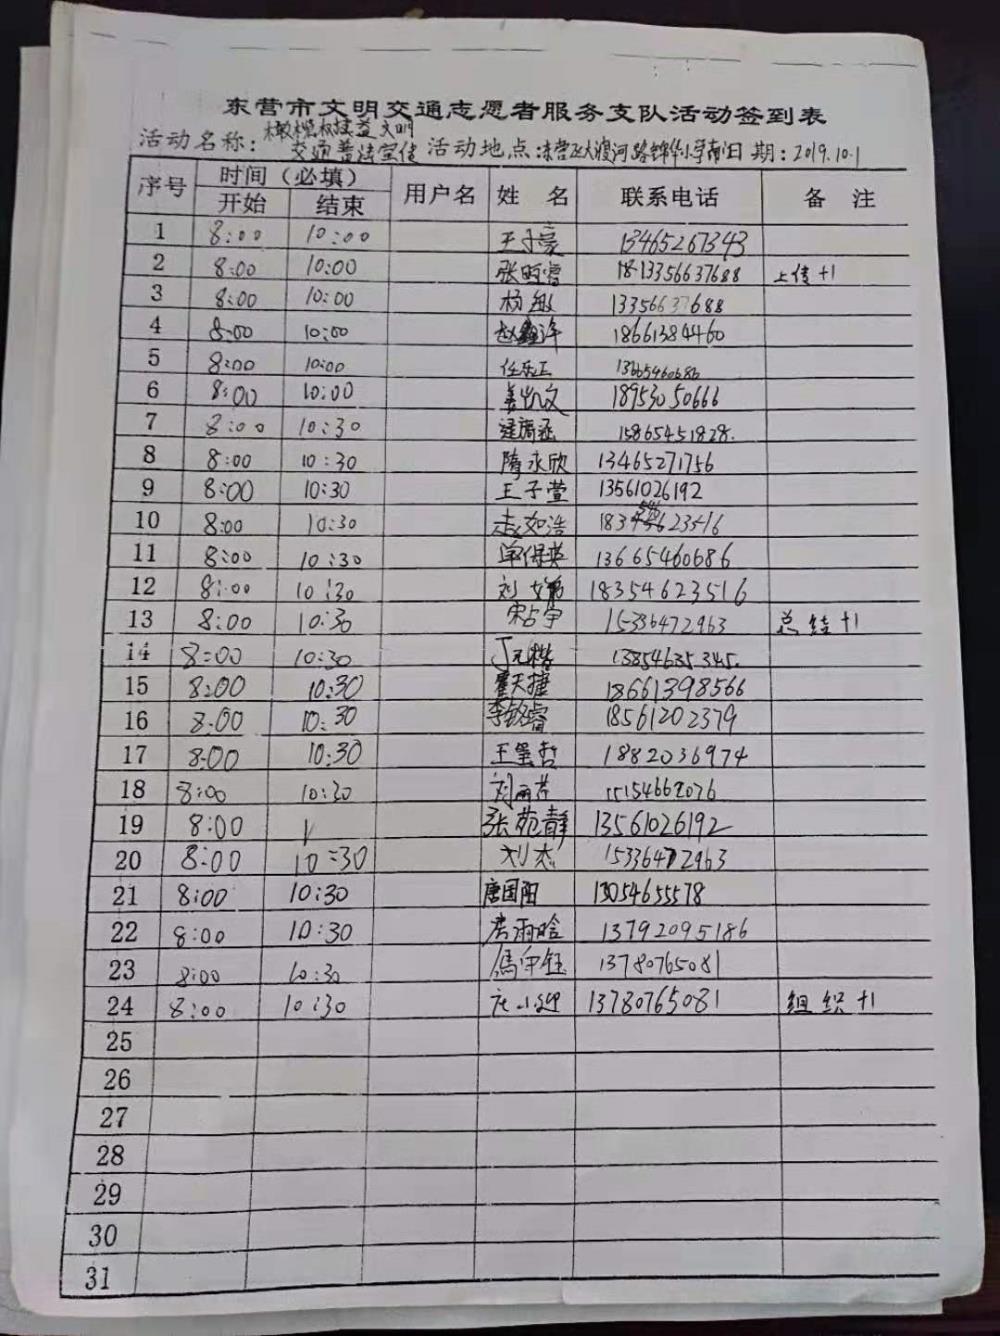 东营市文明交通志愿者服务支队活动签到表
活动名称：橄榄枝公益文明
交通普法宣传 活动地点 东营区大渡河路锦华小学南门 日期：2019.10.1
序号 时间（必填） 用户名 姓 名 联系电话 备 注
开始 结束
1 8:00 10:00 王子豪 13465267343
2 8:00 10:00 张旺睿 18-13356637688 上传+1
3 8:00 10:00 杨敏 13356637688
4 8:00 10:00 赵鑫泽 18661384460
5 8:00 10:00 任乐正 13665460686
6 8:00 10:00 姜凯文 18953050666
7 8:00 10:30 15865451828.
8 8:00 10:30 隋永欣 13465271756
9 8:00 10:30 王子萱 13561026192
10 8:00 10:30 赵如浩 623516
11 8:00 10:30 单保英 13665460686
12 8:00 10:30 刘 18354623516
13 8:00 10:30 宋占宁 15336472963 总结+1
14 8:00 10:30 丁元楷 13854635345.
15 8:00 10:30 霍天捷 18661398566
16 8:00 10:30 李铭睿 18561202379
17 8:00 10:30 王玺哲 1882036974
18 8:00 10:30 刘雨芹 15154662076
19 8:00 张苑静 13561026192
20 8:00 10:30 刘杰 15336472963
21 8:00 10:30 唐国阳 13054655578
22 8:00 10:30 雨晗 13792095186
23 8:00 10:30 13780765081
24 8:00 10:30 庄小迎 13780765081 组织+1
25
26
27
28
29
30
31